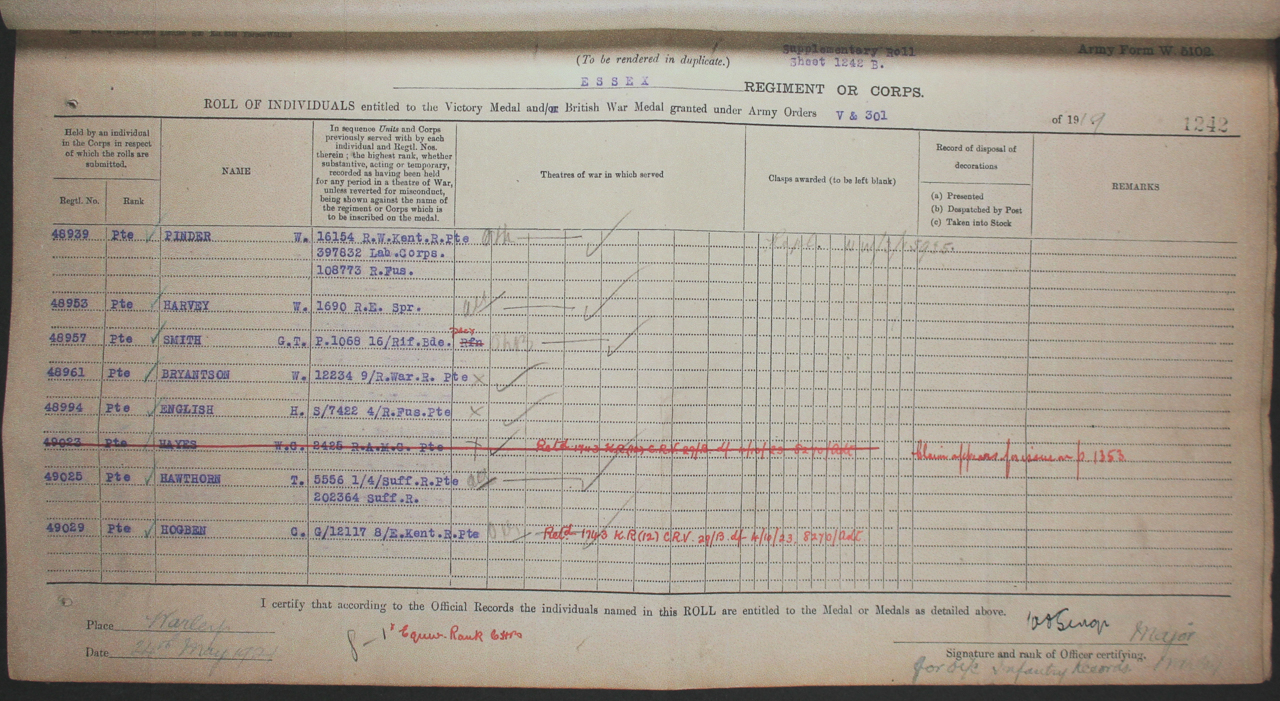 (To be rendered in duplicate.)
Supplementary Roll
Sheet 1242 B.
Army Form W. 5102.
ESSEX REGIMENT OR CORPS.
ROLL OF INDIVIDUALS entitled to the Victory Medal and/or British War Medal granted under Army Orders V & 301 of 1919
1242
Held by an individual
in the Corps in respect
of which the rolls are
submitted.
Regtl. No.
Rank
NAME
In sequence Units and Corps
previously served with by each
individual and Regtl. Nos.
therein ; the highest rank, whether
substantive, acting or temporary,
recorded as having been held
for any period in a theatre of War,
unless reverted for misconduct,
being shown against the name of
the regiment or Corps which is
to be inscribed on the medal.
Theatres of war in which served
Clasps awarded (to be left blank)
Record of disposal of
decorations
(a) Presented
(b) Despatched by Post
(c) Taken into Stock
REMARKS
48939 Pte PINDER W. 16154 R.W.Kent.R.Pte
397832 Lab.Corps.
108773 R.Fus.
48953 Pte HARVEY W. 1690 R.E. Spr.
48957 Pte SMITH G.T. P.1068 16/Rif.Bde. Rfn
48961 Pte BRYANTSON W. 12234 9/R.War.R. Pte X
48994 Pte ENGLISH H. S/7422 4/R.Fus.Pte X
49023 Pte HAYES W.G. 2425 R.A.M.C. Pte Retd 1743 K.R(12) C.R.V. 29/B. df 4/10/23 8270/Adt
49025 Pte HAWTHORN T. 5556 1/4/Suff.R.Pte
202364 Suff.R.
49029 Pte HOGBEN G. G/12117 8/E.Kent.R.Pte Retd 1743 K.R(12) C.R.V. 29/B. df 4/10/23. 8270/Adt
I certify that according to the Official Records the individuals named in this ROLL are entitled to the Medal or Medals as detailed above.
Place Warley
Date 24th May 1921
8 - 1
Major
Signature and rank of Officer certifying.
for O/c Infantry Records